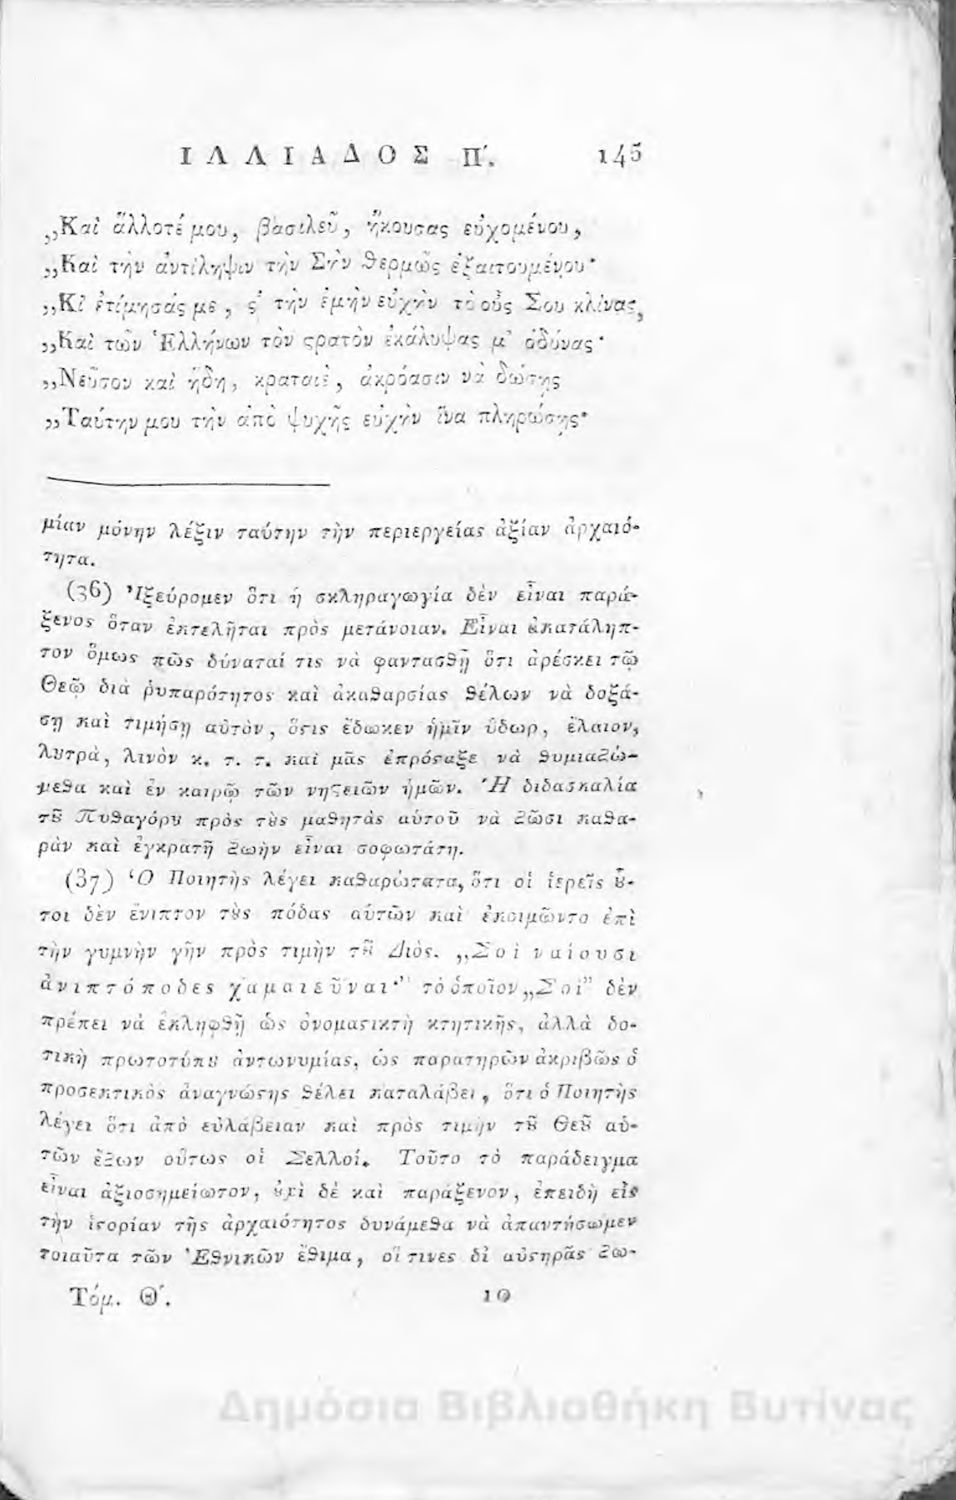 ΙΛΛΙΑΔΟΣ Π΄. 145
„Καὶ ἄλλοτέ μου, βασιλεῦ, ἤκουσας εὐχομένου,
„Καὶ τὴν ἀντίληψιν τὴν Σὴν θερμῶς ἐξαιτουμένου·
„Κἰ ἐτίμησάς με, ς' τὴν ἐμὴν εὐχὴν τὸ οὖς Σου κλίνας,
„Καὶ τῶν Ἑλλήνων τὸν ςρατὸν ἐκάλυψας μ' ὀδύνας·
„Νεῦσον καὶ ἤδη, κραταιὲ, ἀκρόασιν νὰ δώσῃς
„Ταύτην μου τὴν ἀπὸ ψυχῆς εὐχὴν ἵνα πληρώσῃς·
μίαν μόνην λέξιν ταύτην τὴν περιεργείας ἀξίαν ἀρχαιό-
τητα.
(36) Ἠξεύρομεν ὅτι ἡ σκληραγωγία δὲν εἶναι παρά-
ξενος ὅταν ἐκτελῆται πρὸς μετάνοιαν. Εἶναι ἀκατάληπ-
τον ὅμως πῶς δύναταί τις νὰ φαντασθῇ ὅτι ἀρέσκει τῷ
Θεῷ διὰ ῥυπαρότητος καὶ ἀκαθαρσίας θέλων νὰ δοξά-
σῃ καὶ τιμήσῃ αὐτὸν, ὅςις ἔδωκεν ἡμῖν ὕδωρ, ἔλαιον,
λυτρὰ, λινὸν κ. τ. τ. καὶ μᾶς ἐπρόςαξε νὰ θυμιαζώ-
μεθα καὶ ἐν καιρῷ τῶν νηςειῶν ἡμῶν. Ἡ διδασκαλία
τȣ͂ Πυθαγόρȣ πρὸς τȣ̀ς μαθητὰς αὐτοῦ νὰ ζῶσι καθα-
ρὰν καὶ ἐγκρατῆ ζωὴν εἶναι σοφωτάτη.
(37) Ὁ Ποιητὴς λέγει καθαρώτατα, ὅτι οἱ ἱερεῖς ȣ̔͂-
τοι δὲν ἔνιπτον τȣ̀ς πόδας αὐτῶν καὶ ἐκοιμῶντο ἐπὶ
τὴν γυμνὴν γῆν πρὸς τιμὴν τȣ͂ Διός. „Σοὶ ναίουσι
ἀνιπτόποδες χαμαιεῦναι·" τὸ ὁποῖον „Σοὶ" δὲν
πρέπει νὰ ἐκληφθῇ ὡς ὀνομαςικτὴ κτητικῆς, ἀλλὰ δο-
τικὴ πρωτοτύπȣ ἀντωνυμίας, ὡς παρατηρῶν ἀκριβῶς ὁ
προσεκτικὸς ἀναγνώςης θέλει καταλάβει, ὅτι ὁ Ποιητὴς
λέγει ὅτι ἀπὸ εὐλάβειαν καὶ πρὸς τιμὴν τȣ͂ Θεȣ͂ αὐ-
τῶν ἔζων οὕτως οἱ Σελλοί. Τοῦτο τὸ παράδειγμα
εἶναι ἀξιοσημείωτον, ȣ̓χὶ δὲ καὶ παράξενον, ἐπειδὴ εἰς
τὴν ἱςορίαν τῆς ἀρχαιότητος δυνάμεθα νὰ ἀπαντήσωμεν
τοιαῦτα τῶν Ἐθνικῶν ἔθιμα, οἵτινες δἰ αὐςηρᾶς ζω-
Τόμ. Θ΄. 10
Δημόσια Βιβλιοθήκη Βυτίνας